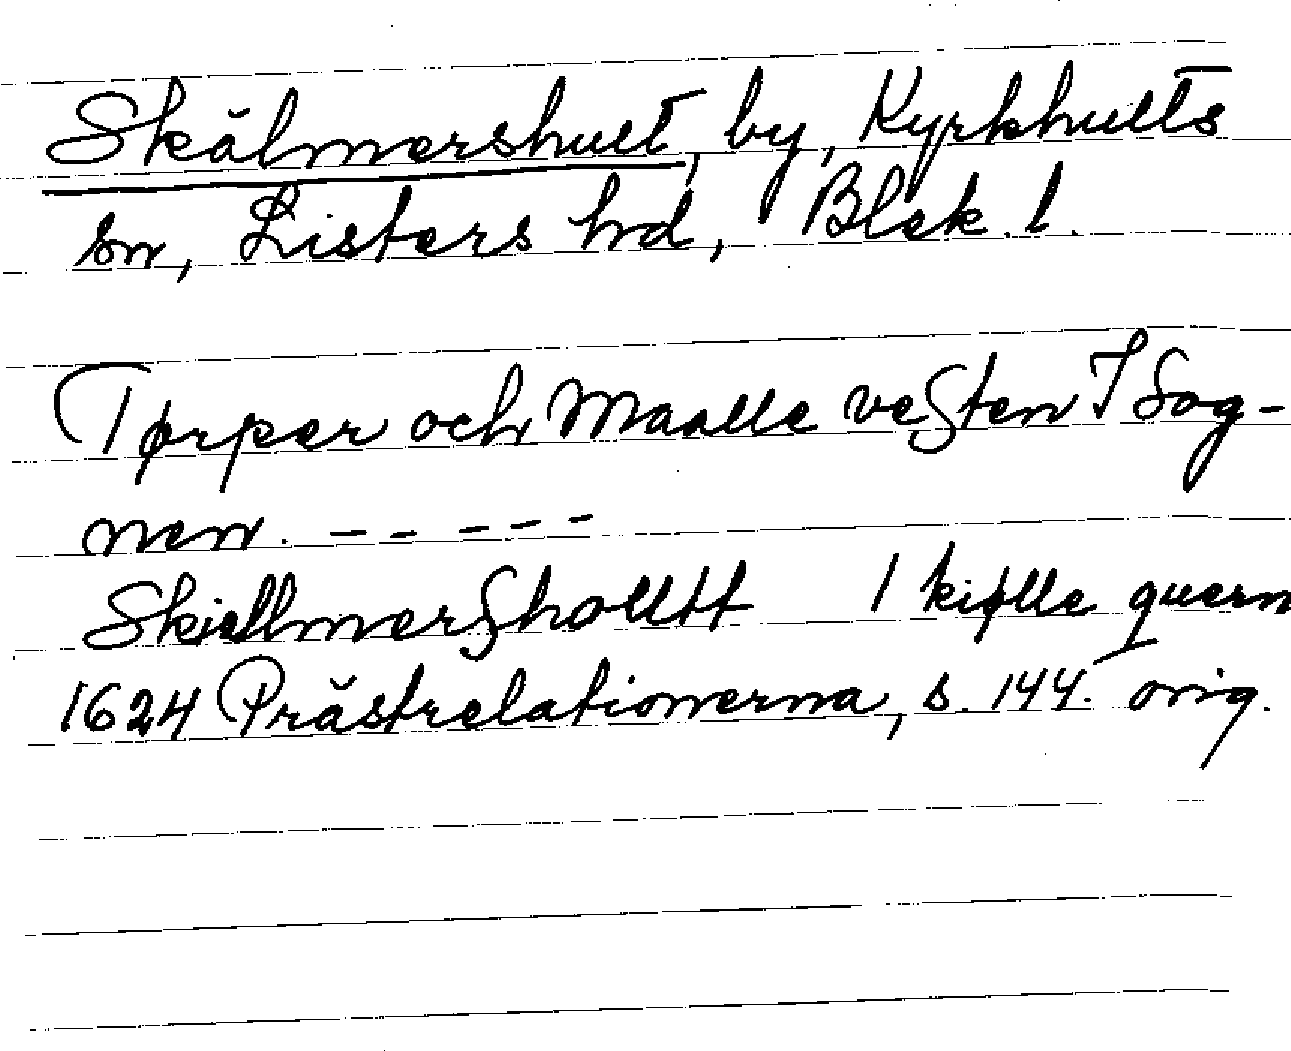 Skälmershult, by, Kyrkhults
sn, Listers hd, Blek. l.
Tørper och Maalle vesten I Sog-
nen. - - - - -
Skiellmersholltt 1 kiølle quern
1624 Prästrelationerna, s. 144. orig.